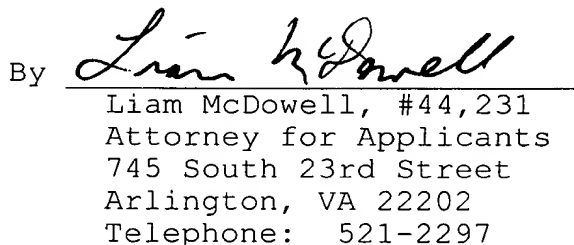 By Liam McDowell
Liam McDowell, #44,231
Attorney for Applicants
745 South 23rd Street
Arlington, VA 22202
Telephone: 521-2297